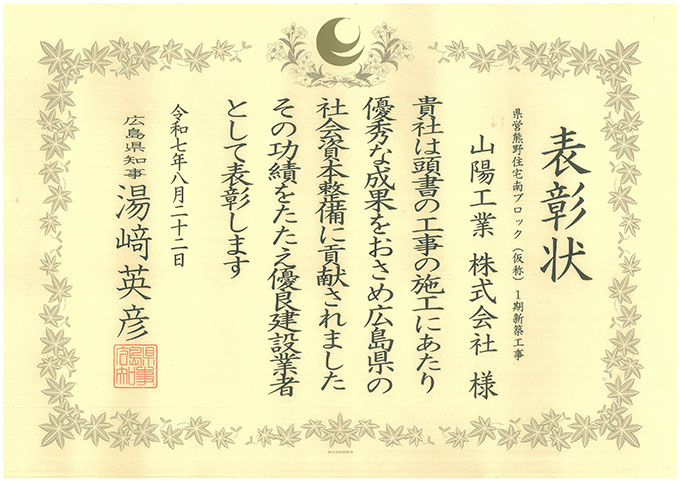 表彰状
県営熊野住宅南ブロック(仮称)1期新築工事
山陽工業 株式会社 様
貴社は頭書の工事の施工にあたり
優秀な成果をおさめ広島県の
社会資本整備に貢献されました
その功績をたたえ優良建設業者
として表彰します
令和七年八月二十二日
広島県知事 湯﨑英彦